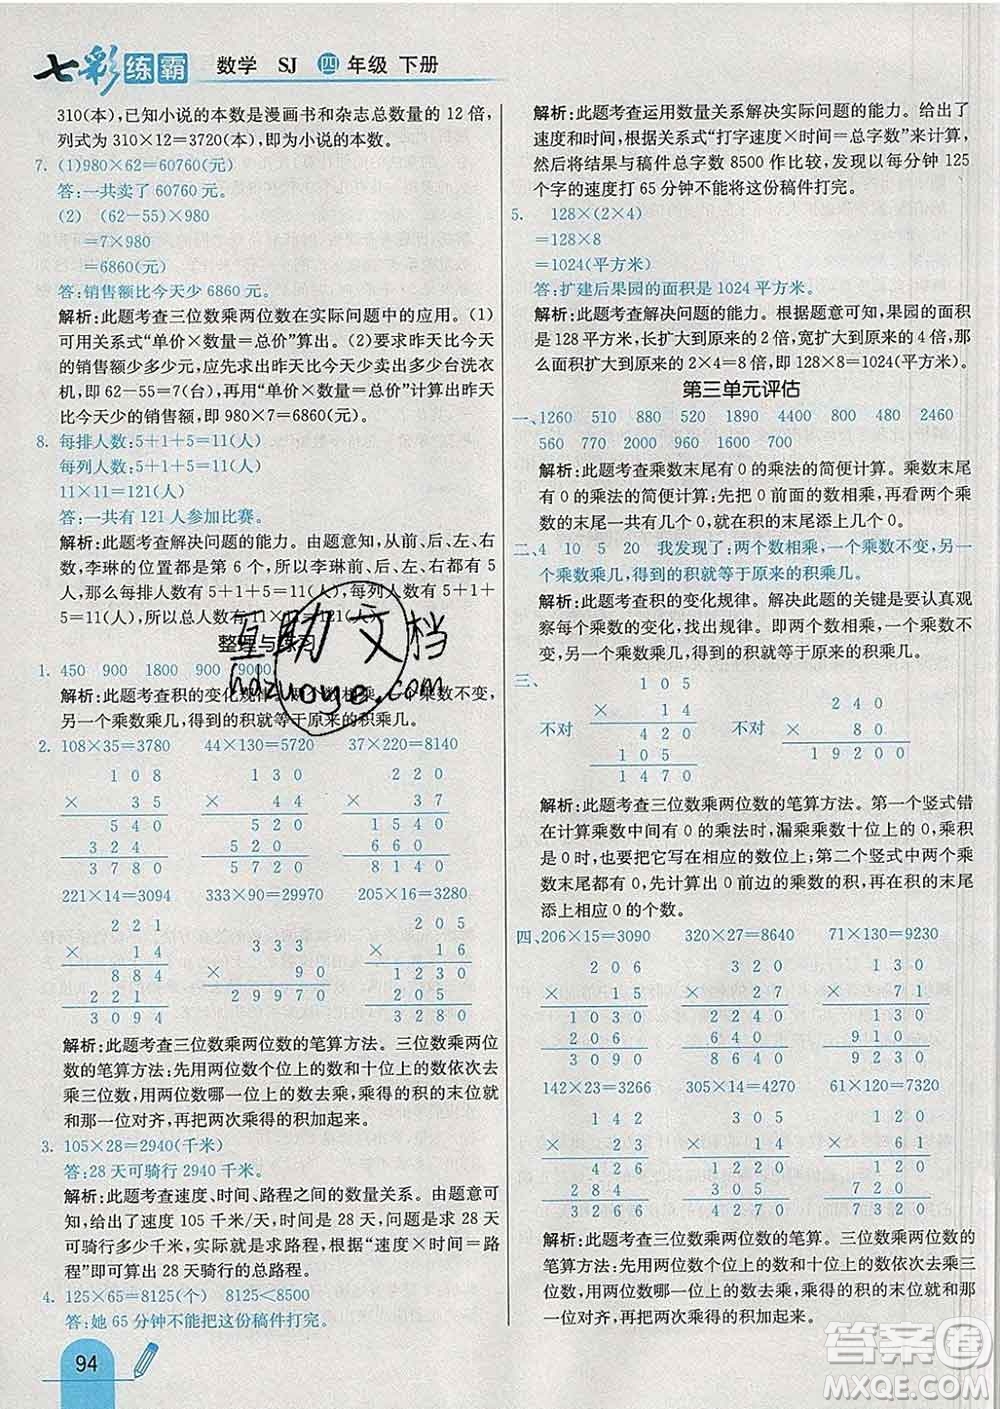 七彩练霸 数学 SJ 四年级 下册
310(本),已知小说的本数是漫画书和杂志总数量的 12 倍,
列式为 310×12=3720(本),即为小说的本数。
7. (1)980×62=60760(元)
答:一共卖了 60760 元。
(2) (62-55)×980
=7×980
=6860(元)
答:销售额比今天少 6860 元。
解析:此题考查三位数乘两位数在实际问题中的应用。(1)
可用关系式“单价×数量=总价”算出。(2)要求昨天比今天
销售额少多少元,应先求出昨天比今天少卖出多少台洗衣
机,即 62-55=7(台),再用“单价×数量=总价”计算出昨天
比今天少的销售额,即 980×7=6860(元)。
8. 每排人数:5+1+5=11(人)
每列人数:5+1+5=11(人)
11×11=121(人)
答:一共有 121 人参加比赛。
解析:此题考查解决问题的能力。由题意知,从前、后、左、右
数,李琳的位置都是第 6 个,所以李琳前、后、左、右都有 5
人,那么每排人数有 5+1+5=11(人),每列人数有 5+1+
5=11(人),所以总人数有 11×11=121(人)。
整理与练习
1. 450 900 1800 900 9000
解析:此题考查积的变化规律。两个数相乘,一个乘数不变,
另一个乘数乘几,得到的积就等于原来的积乘几。
2. 108×35=3780 44×130=5720 37×220=8140
1 0 8 1 3 0 2 2 0
× 3 5 × 4 4 × 3 7
5 4 0 5 2 0 1 5 4 0
3 2 4 5 2 0 6 6 0
3 7 8 0 5 7 2 0 8 1 4 0
221×14=3094 333×90=29970 205×16=3280
2 2 1 3 3 3 2 0 5
× 1 4 × 9 0 × 1 6
8 8 4 2 9 9 7 0 1 2 3 0
2 2 1 2 0 5
3 0 9 4 3 2 8 0
解析:此题考查三位数乘两位数的笔算方法。三位数乘两位
数的笔算方法:先用两位数个位上的数和十位上的数依次去
乘三位数,用两位数哪一位上的数去乘,乘得的积的末位就
和那一位对齐,再把两次乘得的积加起来。
3. 105×28=2940(千米)
答:28 天可骑行 2940 千米。
解析:此题考查速度、时间、路程之间的数量关系。由题意可
知,给出了速度 105 千米/天,时间是 28 天,问题是求 28 天
可骑行多少千米,实际就是求路程,根据“速度×时间=路
程”即可算出 28 天骑行的总路程。
4. 125×65=8125(个) 8125<8500
答:她 65 分钟不能把这份稿件打完。
94
解析:此题考查运用数量关系解决实际问题的能力。给出了
速度和时间,根据关系式“打字速度×时间=总字数”来计算,
然后将结果与稿件总字数 8500 作比较,发现以每分钟 125
个字的速度打 65 分钟不能将这份稿件打完。
5. 128×(2×4)
=128×8
=1024(平方米)
答:扩建后果园的面积是 1024 平方米。
解析:此题考查解决问题的能力。根据题意可知,果园的面积
是 128 平方米,长扩大到原来的 2 倍,宽扩大到原来的 4 倍,
那么面积扩大到原来的 2×4=8 倍,即 128×8=1024(平方米)。
第三单元评估
一、1260 510 880 520 1890 4400 480 2460
560 770 2000 1600 700
解析:此题考查乘数末尾有 0 的乘法的简便计算。乘数末尾
有 0 的乘法的简便计算:先把 0 前面的数相乘,再看两个乘
数的末尾一共有几个 0,就在积的末尾添上几个 0。
二、4 10 5 20 我发现了:两个数相乘,一个乘数不变,另一个
乘数乘几,得到的积就等于原来的积乘几。
解析:此题考查积的变化规律。解决此题的关键是要认真观
察每个乘数的变化,找出规律,即两个数相乘,一个乘数不变,
另一个乘数乘几,得到的积就等于原来的积乘几。
三、 1 0 5 2 4 0
不对 × 1 4 不对 × 8 0
4 2 0 1 9 2 0 0
1 0 5
1 4 7 0
解析:此题考查三位数乘两位数的笔算方法。第一个竖式错
在计算乘数中间有 0 的乘法时,漏乘乘数十位上的 0,乘积
是 0 时,也要把它写在相应的数位上;第二个竖式中两个乘
数末尾都有 0,先计算出 0 前边的数的积,然后在积的末尾
添上相应 0 的个数。
四、206×15=3090 320×27=8640 71×130=9230
2 0 6 3 2 0 1 3 0
× 1 5 × 2 7 × 7 1
1 0 3 0 2 2 4 0 1 3 0
2 0 6 6 4 0 9 1 0
3 0 9 0 8 6 4 0 9 2 3 0
142×23=3266 305×14=4270 61×120=7320
1 4 2 3 0 5 1 2 0
× 2 3 × 1 4 × 6 1
4 2 6 1 2 2 0 1 2 0
2 8 4 3 0 5 7 2 0
3 2 6 6 4 2 7 0 7 3 2 0
解析:此题考查三位数乘两位数的笔算。三位数乘两位数的
笔算方法:先用两位数个位上的数和十位上的数依次去乘三
位数,用两位数哪一位上的数去乘,乘得的积的末位就和那
一位对齐,再把两次乘得的积加起来。
互助文档
hdzuoye.com
答案圈
MXQE.COM